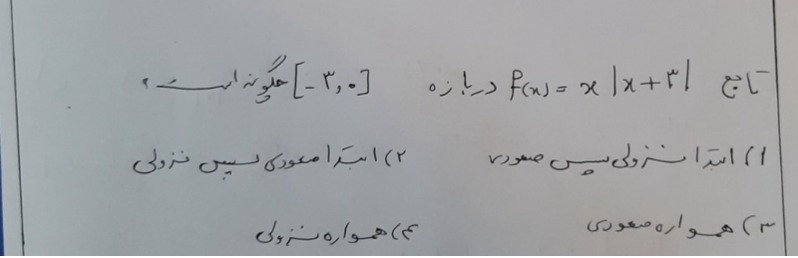 تابع f(x) = x |x+۳| در بازه [-۳,۰] چگونه است؟
۱) ابتدا نزولی سپس صعودی ۲) ابتدا صعودی سپس نزولی
۳) همواره صعودی ۴) همواره نزولی